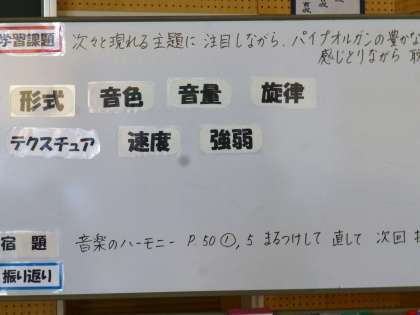 学習課題 次々と現れる主題に注目しながら、パイプオルガンの豊かな
感じとりながら
形式 音色 音量 旋律
テクスチュア 速度 強弱
宿題 音楽のハーモニー P.50 ①,5 まるつけして 直して 次回
振り返り